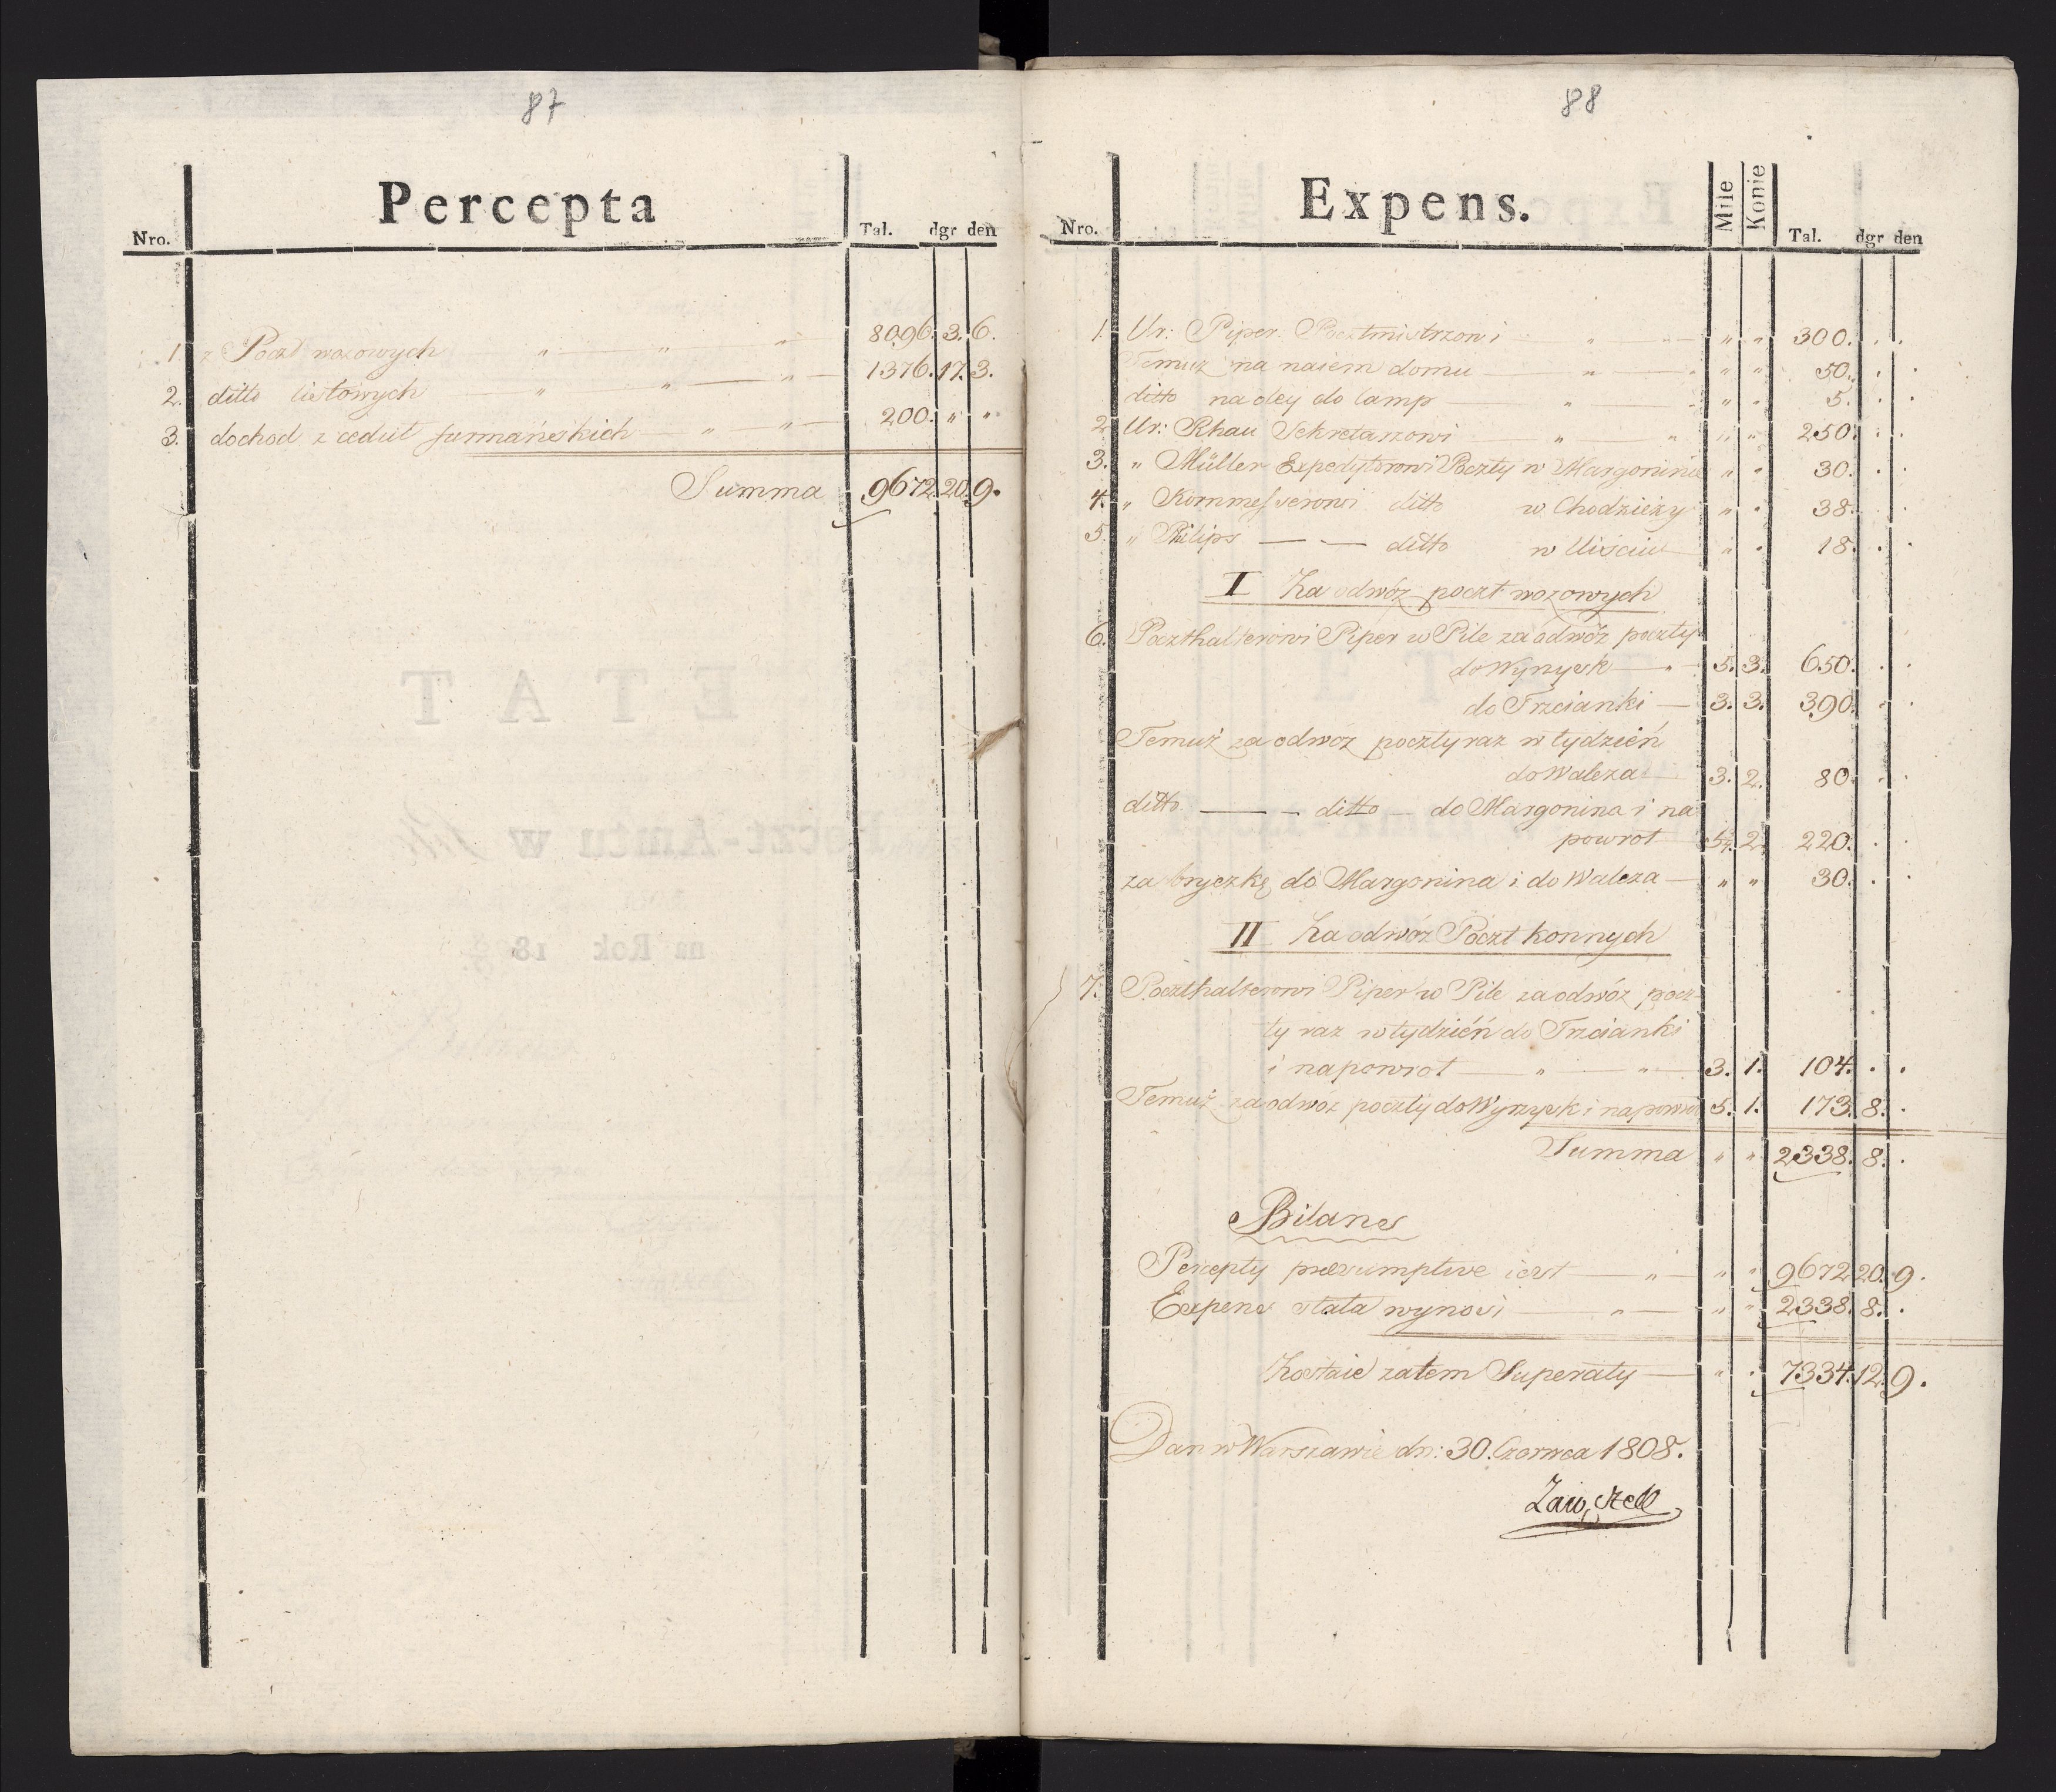 87
Percepta
Nro. Tal. dgr den
1. z Poczt wozowych " " " 8096. 3. 6.
2. ditto listowych " " " 1376. 17. 3.
3. dochod z cedul furmańskich " " 200. " "
Summa 9672. 20. 9.
88
Expens.
Nro. Mile Konie Tal. dgr den
1. Ur: Piper Pocztmistrzowi " " " " 300. . .
Temuż na naiem domu " " " 50. . .
ditto na oley do lamp " " " 5. . .
2. Ur: Rhau Sekretarzowi " " " " 250. . .
3. " Müller Expedytorowi Poczty w Margoninie " " 30. . .
4. " Kommesserowi ditto w Chodzieży " " 38. . .
5. " Philips ditto w Uściu " " 18. . .
I Za odwóz poczt wozowych
6. Poczthalterowi Piper w Pile za odwóz poczty
do Wyrzysk " 5. 3. 650. . .
do Trzcianki 3. 3. 390. . .
Temuż za odwóz poczty raz w tydzień
do Walcza 3. 2. 80. . .
ditto ditto do Margonina i na
powrot 2. 220. . .
za bryczkę do Margonina i do Walcza " " 30. . .
II Za odwóz Poczt konnych
7. Poczthalterowi Piper w Pile za odwóz pocz-
ty raz w tydzień do Trzcianki
i napowrot " " 3. 1. 104. . .
Temuż za odwoz poczty do Wyrzysk i napowrot 5. 1. 173. 8. .
Summa " " 2338. 8. .
Bilans
Percepty praesumptive iest " " " 9672 20. 9.
Expens stała wynosi " " " 2338. 8. .
Zostaie zatem Superaty " " 7334. 12. 9.
Dan w Warszawie dn: 30. Czerwca 1808.